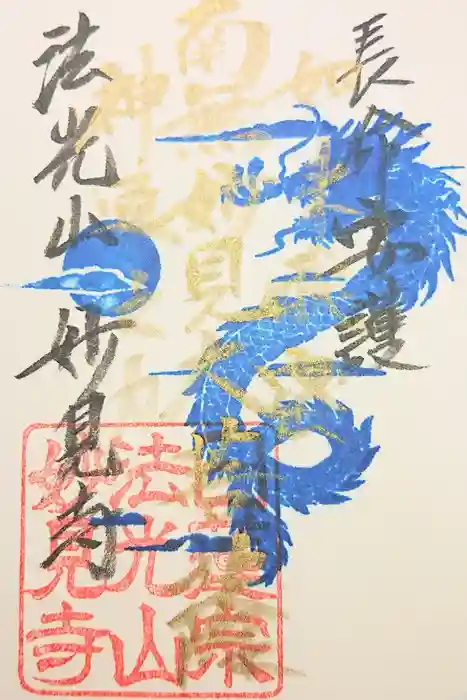 長 守護
如
南無妙見大
神通之力
法光山妙見寺
日蓮宗
法光山
妙見寺